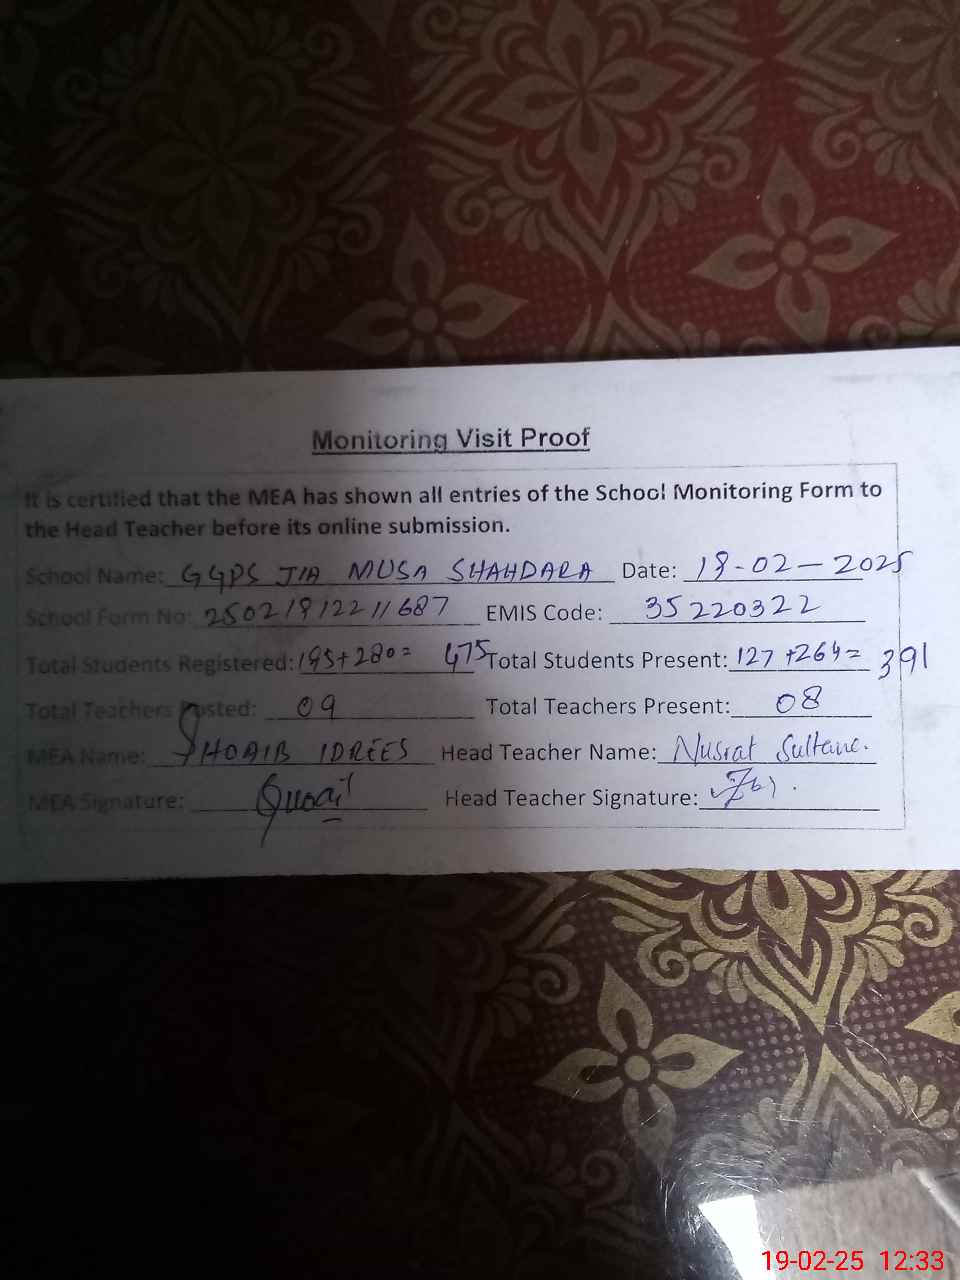 Monitoring Visit Proof
It is certified that the MEA has shown all entries of the School Monitoring Form to
the Head Teacher before its online submission.
School Name: GGPS JIA MUSA SHAHDARA Date: 18-02-2025
School Form No: 25021812211687 EMIS Code: 35220322
Total Students Registered: 195+280= 475 Total Students Present: 127+264= 391
Total Teachers Posted: 09 Total Teachers Present: 08
MEA Name: SHOAIB IDREES Head Teacher Name: Nusrat Sultana.
MEA Signature: Head Teacher Signature:
19-02-25 12:33